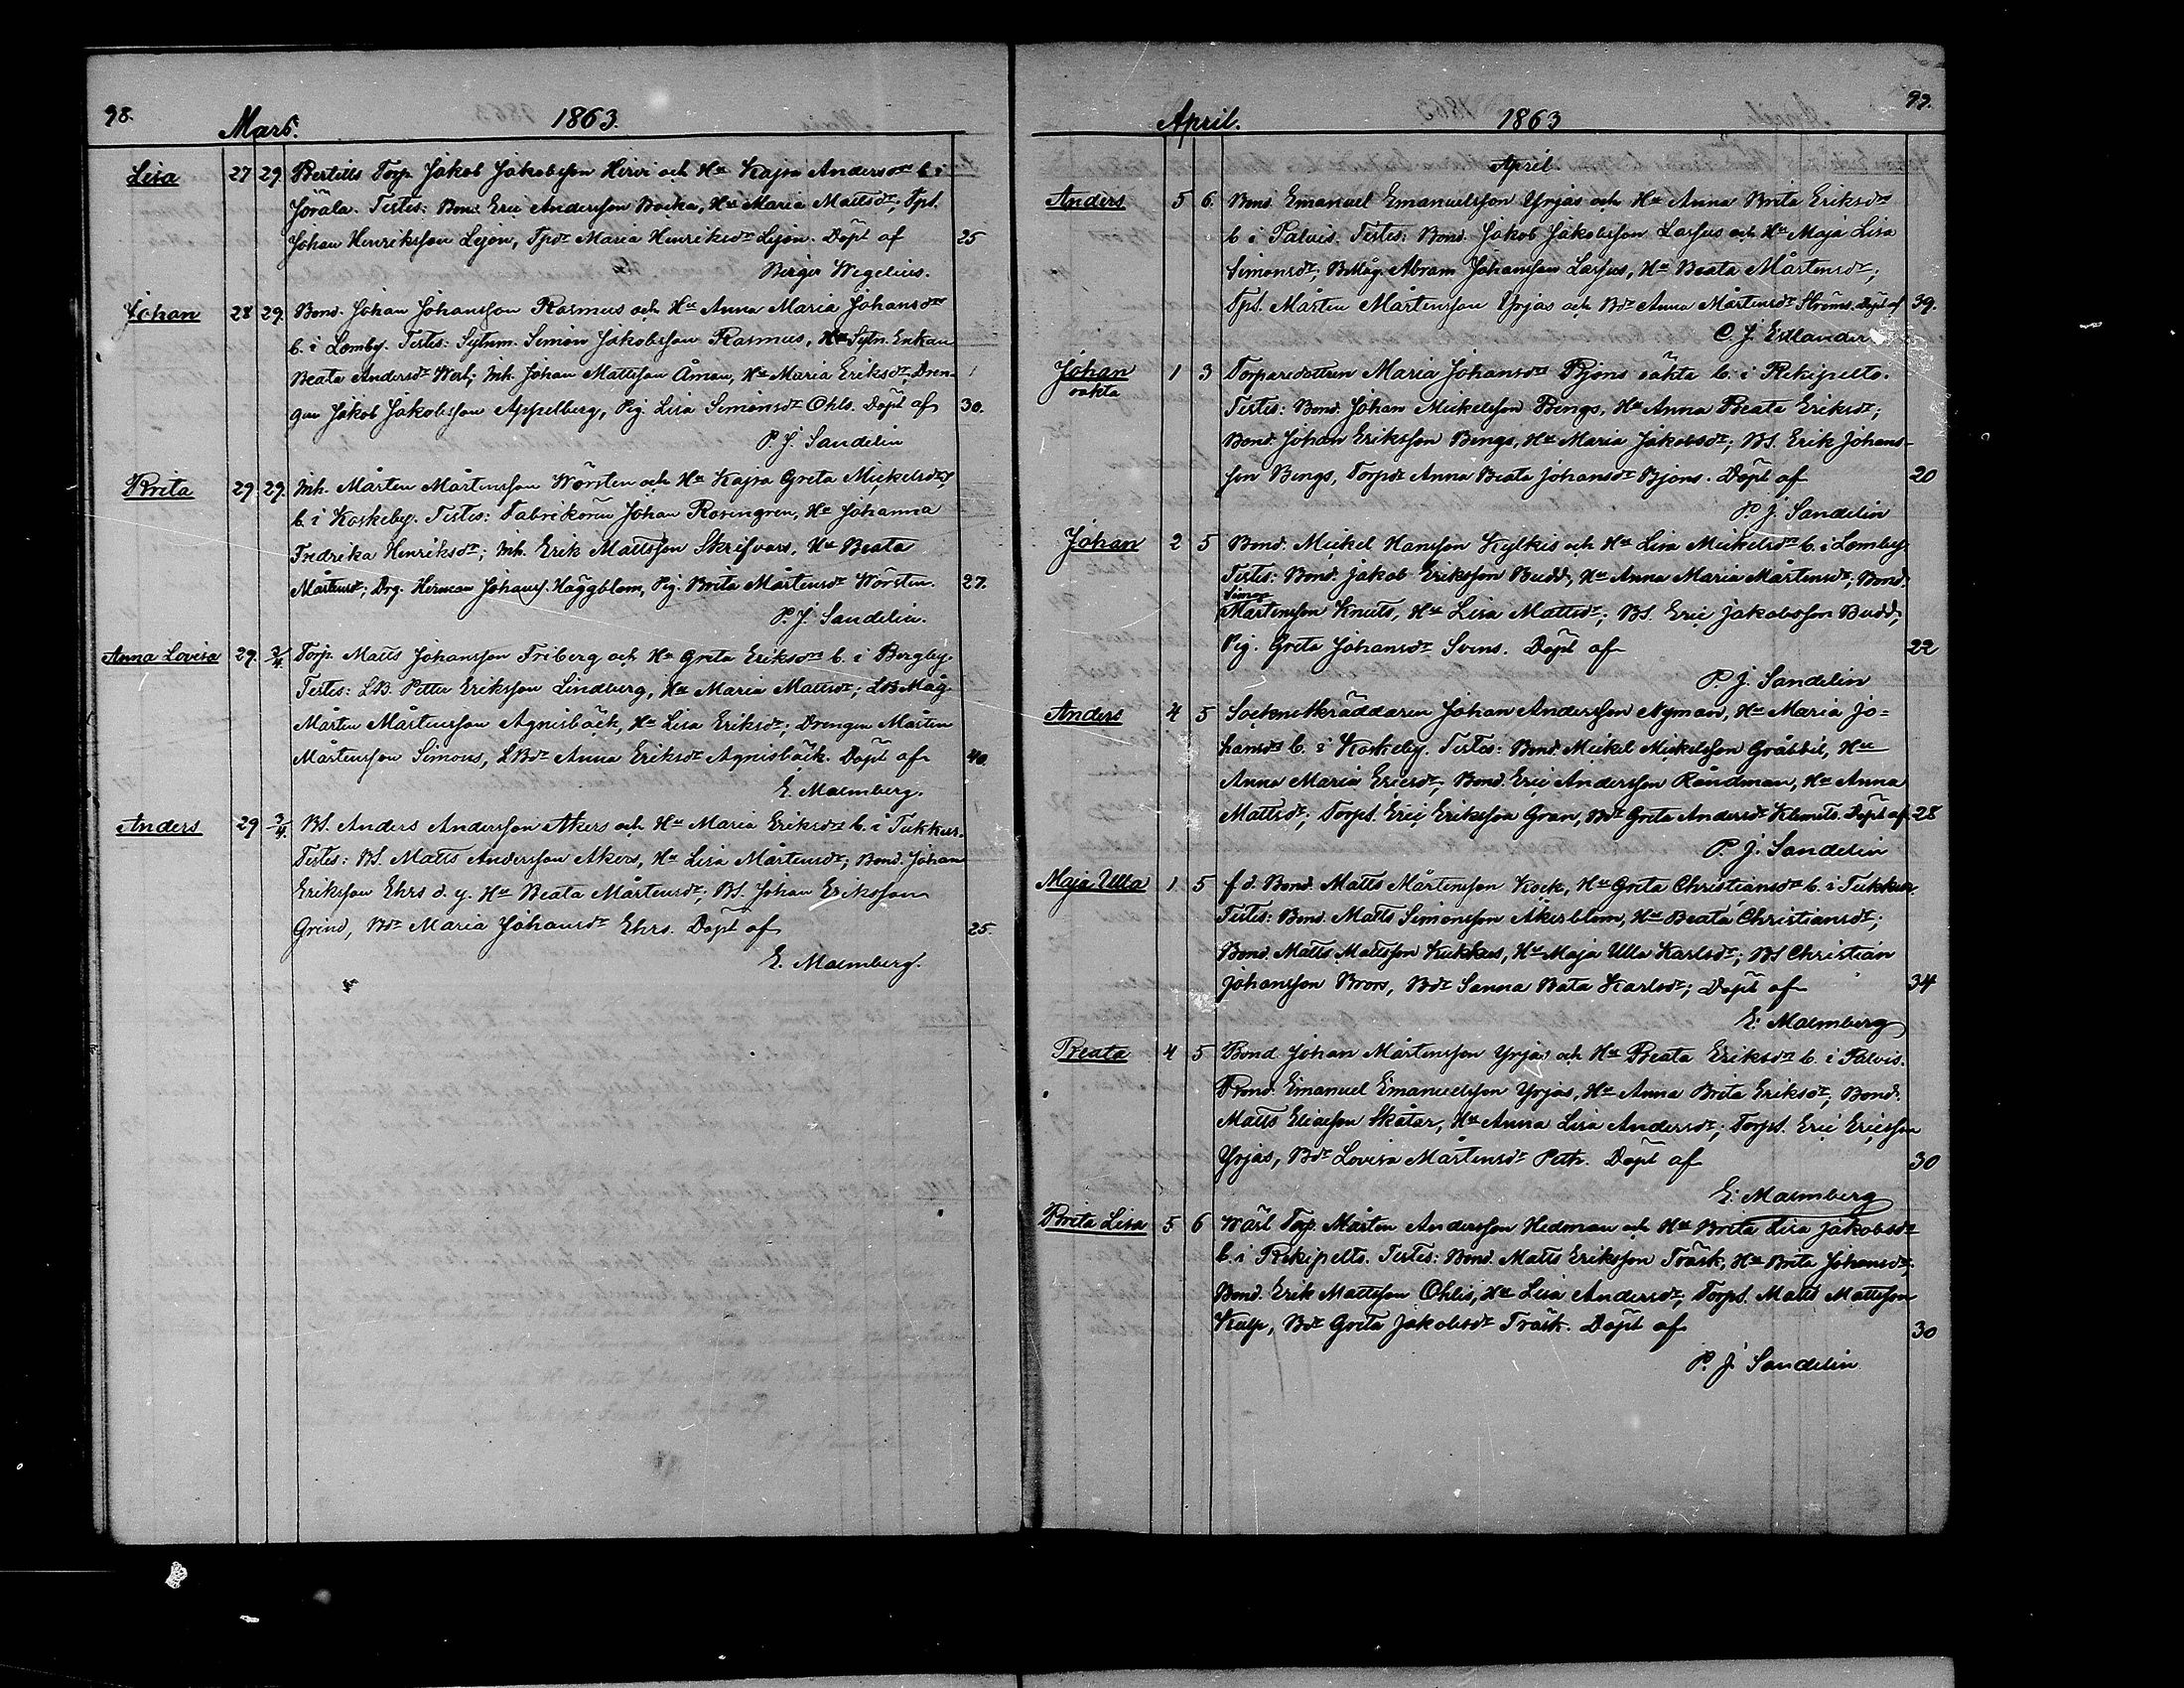 98.
Mars. 1863.
Lisa 27 29. Bertills Torp. Jakob Jakobsson Hirvi och Hu Kajsa Andersdr b. i
Jöråla. Testes: Bond. Eric Andersson Backa, Hu Maria Mattsdr, Tps.
Johan Henriksson Lejon, Tpdr Maria Henriksdr Lejon. Döpt af 25
Birger Wegelius.
Johan 28 29. Bond. Johan Johansson Rasmus och Hu Anna Maria Johansdr
b. i Lomby. Testes: Sytnm. Simon Jakobsson Rasmus, Sytn. Enkan
Beata Andersdr; Inh. Johan Mattsson Åman, Hu Maria Eriksdr, Dren-
gen Jakob Jakobsson Appelberg, Pig. Lisa Simonsdr Ohls. Döpt af 30.
P. J. Sandelin
Brita 29 29. Inh. Mårten Mårtensson Wörsten och Hu Kajsa Greta Mickelsdr,
b. i Koskeby. Testes: Fabrikören Johan Rosengren, Hu Johanna
Fredrika Henriksdr; Inh. Erik Mattsson Skrifvars, Hu Beata
Mårtensdr; Drg. Herman Johanss. Häggblom, Pig. Brita Mårtensdr Wörsten. 27.
P. J. Sandelin.
Anna Lovisa 29. 2/4 Torp. Matts Johansson Friberg och Hu Greta Eriksdr b. i Bergby.
Testes: LB. Petter Eriksson Lindberg, Hu Maria Mattsdr; LBMåg.
Mårten Mårtensson Agnisbäck, Hu Lisa Eriksdr; Drengen Mårten
Mårtensson Simons, LBdr Anna Eriksdr Agnisbäck. Döpt af 40.
E. Malmberg.
Anders 29 3/4. BS. Anders Andersson Akers och Hu Maria Eriksdr b. i Tukkur.
Testes: BS. Matts Andersson Akers, Hu Lisa Mårtensdr; Bond. Johan
Eriksson Ehrs d. y. Hu Beata Mårtensdr; BS. Johan Eriksson
Grind, Bdr Maria Johansdr Ehrs. Döpt af 25.
E. Malmberg.
99.
April. 1863
April
Anders 5 6. Bond. Emanuel Emanuelsson Yrjas och Hu Anna Brita Eriksdr
b i Palvis. Testes: Bond. Jakob Jakobsson Lassus och Hu Maja Lisa
Simonsdr; BMåg. Abram Johansson Lassus, Hu Beata Mårtensdr;
Tps. Mårten Mårtensson Yrjas och Bdr Anna Mårtensdr Ströms. Döpt af 39.
C. J. Estlander
Johan 1 3 Torparedottren Maria Johansdr Bjöns oäkta b. i Rekipelto.
oäkta
Testes: Bond. Johan Mickelsson Bengs, Hu Anna Beata Eriksdr;
Bond. Johan Eriksson Bengs, Hu Maria Jakobsdr; BS. Erik Johans-
son Bengs, Torpdr Anna Beata Johansdr Bjöns. Döpt af 20
P. J. Sandelin
Johan 2 5 Bond. Mickel Hansson Kylkis och Hu Lisa Mickelsdr b. i Lomby.
Testes: Bond. Jakob Eriksson Budd, Hu Anna Maria Mårtensdr; Bond.
Simon
Mårtensson Knuts, Hu Lisa Mattsdr; BS. Eric Jakobsson Budd,
Pig. Greta Johansdr Svens. Döpt af 22
P. J. Sandelin
Anders 4 5 Sockneskräddaren Johan Andersson Nyman, Hu Maria Jo=
hansdr b. i Koskeby. Testes: Bond. Mickel Mickelsson Gråbbil, Hu
Anna Maria Ericsdr, Bond. Eric Andersson Råndman, Hu Anna
Mattsdr; Torps. Eric Eriksson Gran, Bdr Greta Andersdr Klemets. Döpt af. 28
P. J. Sandelin
Maja Ulla 1. 5 f d. Bond. Matts Mårtensson Kock, Hu Greta Christiansdr b. i Tukkur.
Testes: Bond. Matts Simonsson Åkerblom, Hu Beata Christiansdr;
Bond. Matts Mattsson Kukkus, Hu Maja Ulla Karlsdr; BS Christian
Johansson Brors, Bdr Sanna Bata Karlsdr; Döpt af 34
E. Malmberg
Beata 4 5 Bond Johan Mårtensson Yrjas och Hu Beata Eriksdr b. i Palvis.
Bond. Emanuel Emanuelsson Yrjas, Hu Anna Brita Eriksdr, Bond.
Matts Eliasson Skåtar, Hu Anna Lisa Andersdr; Torps. Eric Ericsson
Yrjas, Bdr Lovisa Mårtensdr Peth. Döpt af 30
E. Malmberg
Brita Lisa 5 6 Wärl Torp. Mårten Andersson Hedman och Hu Brita Lisa Jakobsdr
b. i Rekipelto. Testes: Bond. Matts Eriksson Träsk, Hu Brita Johansdr;
Bond. Erik Mattsson Ohlis, Hu Lisa Andersdr, Torps. Matts Mattsson
Kulp, Bdr Greta Jakobsdr Träsk. Döpt af 30
P. J. Sandelin